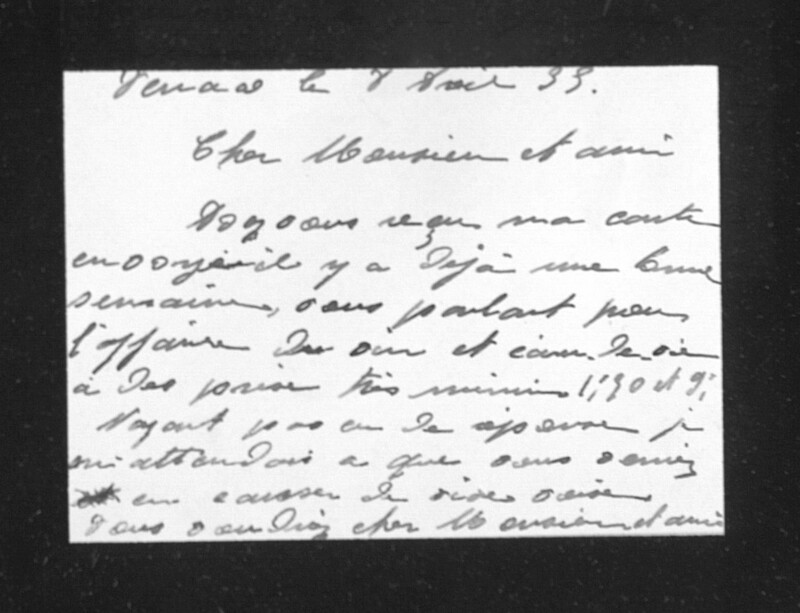 le 8 Avril 33.
Cher Monsieur et ami
Avez vous reçu ma carte
envoyée il y a déjà une bonne
semaine, vous parlant pour
l'affaire du vin et eau-de-vie
à des prix très minime 1,30 et 9,
N'ayant pas eu de réponse je
m'attendais a que vous veniez
en causer de vive voix
Vous voudriez cher Monsieur et ami